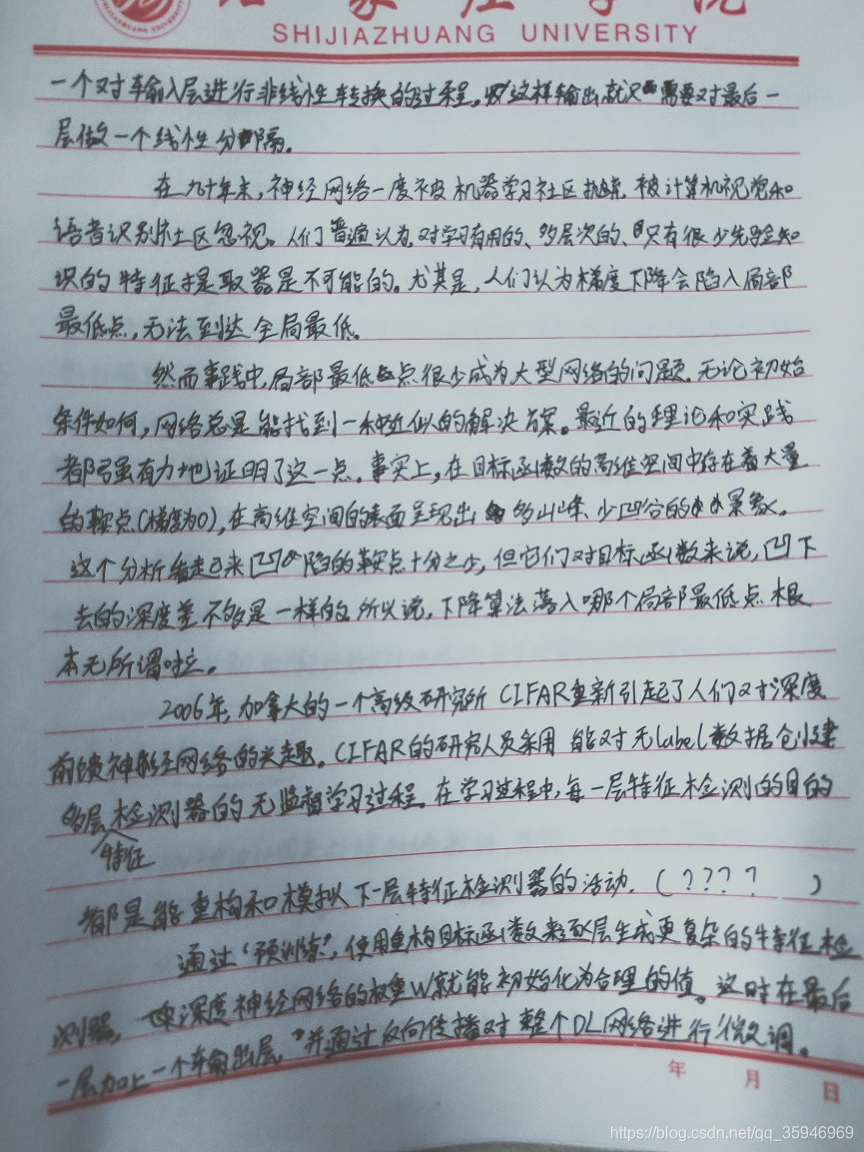 SHIJIAZHUANG UNIVERSITY
一个对输入层进行非线性转换的过程。这样输出就只需要对最后一
层做一个线性分隔。
在九十年末，神经网络一度被机器学习社区抛弃，被计算机视觉和
语音识别社区忽视。人们普遍认为，对学习有用的、多层次的、只有很少先验知
识的特征提取器是不可能的。尤其是，人们认为梯度下降会陷入局部
最低点，无法到达全局最低。
然而事践中，局部最低点很少成为大型网络的问题。无论初始
条件如何，网络总是能找到一种近似的解决方案。最近的理论和实践
都强有力地证明了这一点。事实上，在目标函数的高维空间中存在着大量
的鞍点(梯度为0)，在高维空间的表面呈现出多山峰、少凹谷的景象。
这个分析看起来凹陷的鞍点十分之少，但它们对目标函数来说，凹下
去的深度差不多是一样的。所以说，下降算法落入哪个局部最低点根
本无所谓啦。
2006年，加拿大的一个高级研究所CIFAR重新引起了人们对深度
前馈神经网络的兴趣。CIFAR的研究人员采用 能对无label数据创建
多层特征检测器的无监督学习过程。在学习过程中，每一层特征检测的目的
都是能重构和模拟下一层特征检测器的活动。(？？？？ )
通过“预训练”，使用重构目标函数来逐层生成更复杂的特征检
测器，深度神经网络的权重W就能初始化为合理的值。这时在最后
一层加上一个输出层，并通过反向传播对整个DL网络进行微调。
年 月 日
https://blog.csdn.net/qq_35946969